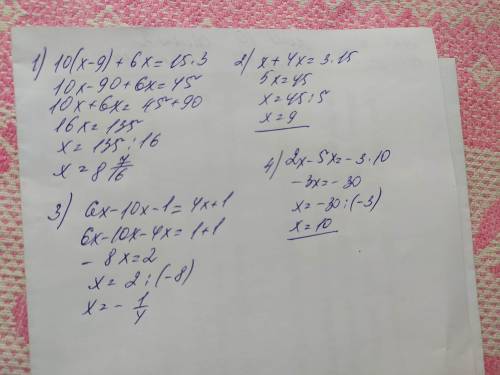 1) 10(x-9)+6x=15.3
10x-90+6x=45
10x+6x=45+90
16x=135
x=135:16
x=8 7/16
2) x+4x=3.15
5x=45
x=45:5
x=9
3) 6x-10x-1=4x+1
6x-10x-4x=1+1
-8x=2
x=2:(-8)
x=-1/4
4) 2x-5x=-3.10
-3x=-30
x=-30:(-3)
x=10